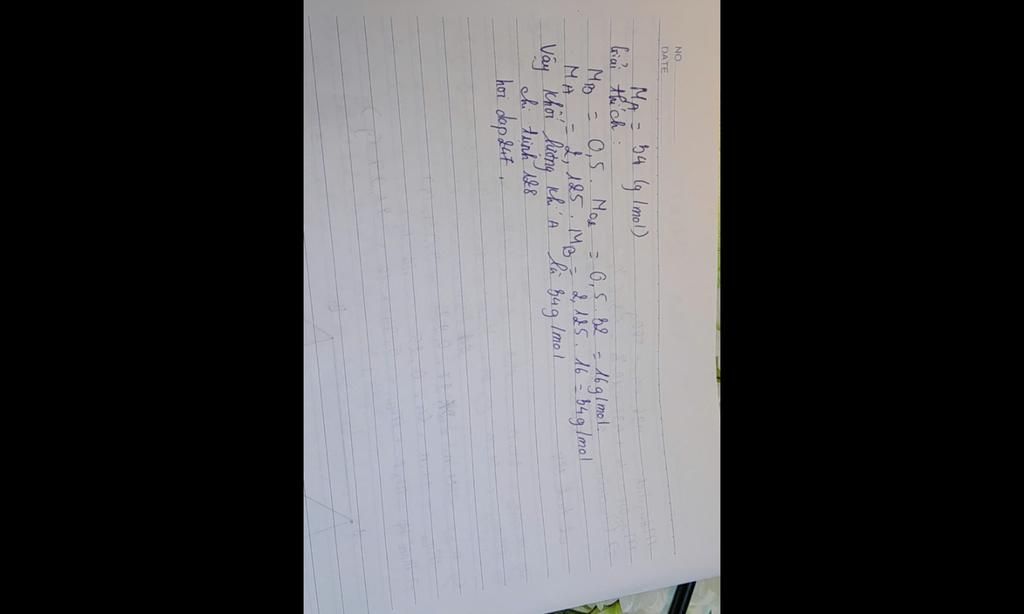 NO
DATE
MA = 34 (g/mol)
Giải thích:
MB = 0,5 . MO2 = 0,5 . 32 = 16g/mol.
MA = 2,125 . MB = 2,125 . 16 = 34g/mol
Vậy khối lượng khí A là 34g/mol
chi trinh 128
hoi dap247.